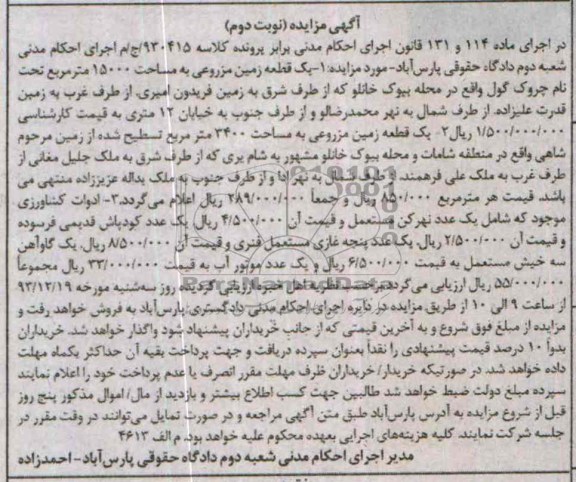 آگهی مزایده (نوبت دوم)
در اجرای ماده ۱۱۴ و ۱۳۱ قانون اجرای احکام مدنی برابر پرونده کلاسه ۹۳۰۴۱۵/ج/م اجرای احکام مدنی
شعبه دوم دادگاه حقوقی پارس‌آباد- مورد مزایده: ۱-یک قطعه زمین مزروعی به مساحت ۱۵۰۰۰ مترمربع تحت
نام چروک گول واقع در محله بیوک خانلو که از طرف شرق به زمین فریدون امیری، از طرف غرب به زمین
قدرت علیزاده، از طرف شمال به نهر محمدرضالو و از طرف جنوب به خیابان ۱۲ متری به قیمت کارشناسی
۱/۵۰۰/۰۰۰/۰۰۰ ریال ۲- یک قطعه زمین مزروعی به مساحت ۳۴۰۰ متر مربع تسطیح شده از زمین مرحوم
شاهی واقع در منطقه شامات و محله بیوک خانلو مشهور به شام یری که از طرف شرق به ملک جلیل مغانی از
طرف غرب به ملک علی فرهمند، از طرف شمال به نهر آدا و از طرف جنوب به ملک یداله عزیززاده منتهی می
باشد. قیمت هر مترمربع ۸۵۰/۰۰۰ ریال و جمعاً ۲۸۹/۰۰۰/۰۰۰ ریال اعلام می‌گردد.۳- ادوات کشاورزی
موجود که شامل یک عدد نهرکن مستعمل و قیمت آن ۴/۵۰۰/۰۰۰ ریال، یک عدد کودپاش قدیمی فرسوده
و قیمت آن ۲/۵۰۰/۰۰۰ ریال، یک عدد پنجه غازی مستعمل فنری و قیمت آن ۸/۵۰۰/۰۰۰ ریال، یک گاوآهن
سه خیش مستعمل به قیمت ۶/۵۰۰/۰۰۰ ریال و یک عدد موتور آب به قیمت ۳۳/۰۰۰/۰۰۰ ریال مجموعاً
۵۵/۰۰۰/۰۰۰ ریال ارزیابی می‌گردد برحسب نظریه اهل خبره ارزیابی گردیده روز سه‌شنبه مورخه ۹۳/۱۲/۱۹
از ساعت ۹ الی ۱۰ از طریق مزایده در دایره اجرای احکام مدنی دادگستری پارس‌آباد به فروش خواهد رفت و
مزایده از مبلغ فوق شروع و به آخرین قیمتی که از جانب خریداران پیشنهاد شود واگذار خواهد شد. خریداران
بدواً ۱۰ درصد قیمت پیشنهادی را نقداً بعنوان سپرده دریافت و جهت پرداخت بقیه آن حداکثر یکماه مهلت
داده خواهد شد. در صورتیکه خریدار/ خریداران ظرف مهلت مقرر انصرف یا عدم پرداخت خود را اعلام نمایند
سپرده مبلغ دولت ضبط خواهد شد طالبین جهت کسب اطلاع بیشتر و بازدید از مال/ اموال مذکور پنج روز
قبل از شروع مزایده به آدرس پارس‌آباد طبق متن آگهی مراجعه و در صورت تمایل می‌توانند در وقت مقرر در
جلسه شرکت نمایند. کلیه هزینه‌های اجرایی بعهده محکوم علیه خواهد بود. م الف ۴۶۱۳
مدیر اجرای احکام مدنی شعبه دوم دادگاه حقوقی پارس‌آباد- احمدزاده